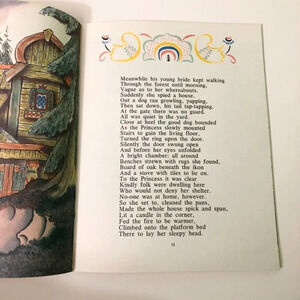 Meanwhile his young bride kept walking
Through the forest until morning,
Vague as to her whereabouts.
Suddenly she spied a house.
Out a dog ran growling, yapping,
Then sat down, his tail tap-tapping.
At the gate there was no guard.
All was quiet in the yard.
Close at heel the good dog bounded
As the Princess slowly mounted
Stairs to gain the living floor,
Turned the ring upon the door.
Silently the door swung open
And before her eyes unfolded
A bright chamber: all around
Benches strewn with rugs she found,
Board of oak beneath the ikon
And a stove with tiles to lie on.
To the Princess it was clear
Kindly folk were dwelling here
Who would not deny her shelter.
No-one was at home, however.
So she set to, cleaned the pans,
Made the whole house spick and span,
Lit a candle in the corner,
Fed the fire to be warmer,
Climbed onto the platform bed
There to lay her sleepy head.
11